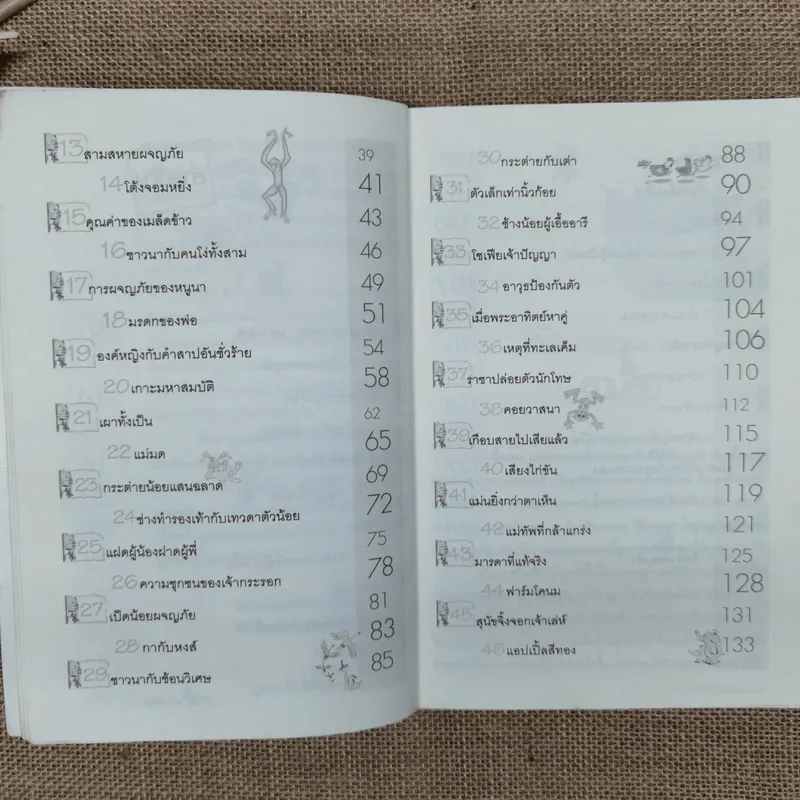 13 สามสหายผจญภัย 39
14 โต้งจอมหยิ่ง 41
15 คุณค่าของเมล็ดข้าว 43
16 ชาวนากับคนโง่ทั้งสาม 46
17 การผจญภัยของหนูนา 49
18 มรดกของพ่อ 51
19 องค์หญิงกับคำสาปอันชั่วร้าย 54
20 เกาะมหาสมบัติ 58
21 เผาทั้งเป็น 62
22 แม่มด 65
23 กระต่ายน้อยแสนฉลาด 69
24 ช่างทำรองเท้ากับเทวดาตัวน้อย 72
25 แฝดผู้น้องฝาดผู้พี่ 75
26 ความซุกซนของเจ้ากระรอก 78
27 เป็ดน้อยผจญภัย 81
28 กากับหงส์ 83
29 ชาวนากับช้อนวิเศษ 85
30 กระต่ายกับเต่า 88
31 ตัวเล็กเท่านิ้วก้อย 90
32 ช้างน้อยผู้เอื้ออารี 94
33 โซเฟียเจ้าปัญญา 97
34 อาวุธป้องกันตัว 101
35 เมื่อพระอาทิตย์หาคู่ 104
36 เหตุที่ทะเลเค็ม 106
37 ราชาปล่อยตัวนักโทษ 110
38 คอยวาสนา 112
39 เกือบสายไปเสียแล้ว 115
40 เสียงไก่ขัน 117
41 แม่นยิ่งกว่าตาเห็น 119
42 แม่ทัพที่กล้าแกร่ง 121
43 มารดาที่แท้จริง 125
44 ฟาร์มโคนม 128
45 สุนัขจิ้งจอกเจ้าเล่ห์ 131
46 แอปเปิ้ลสีทอง 133